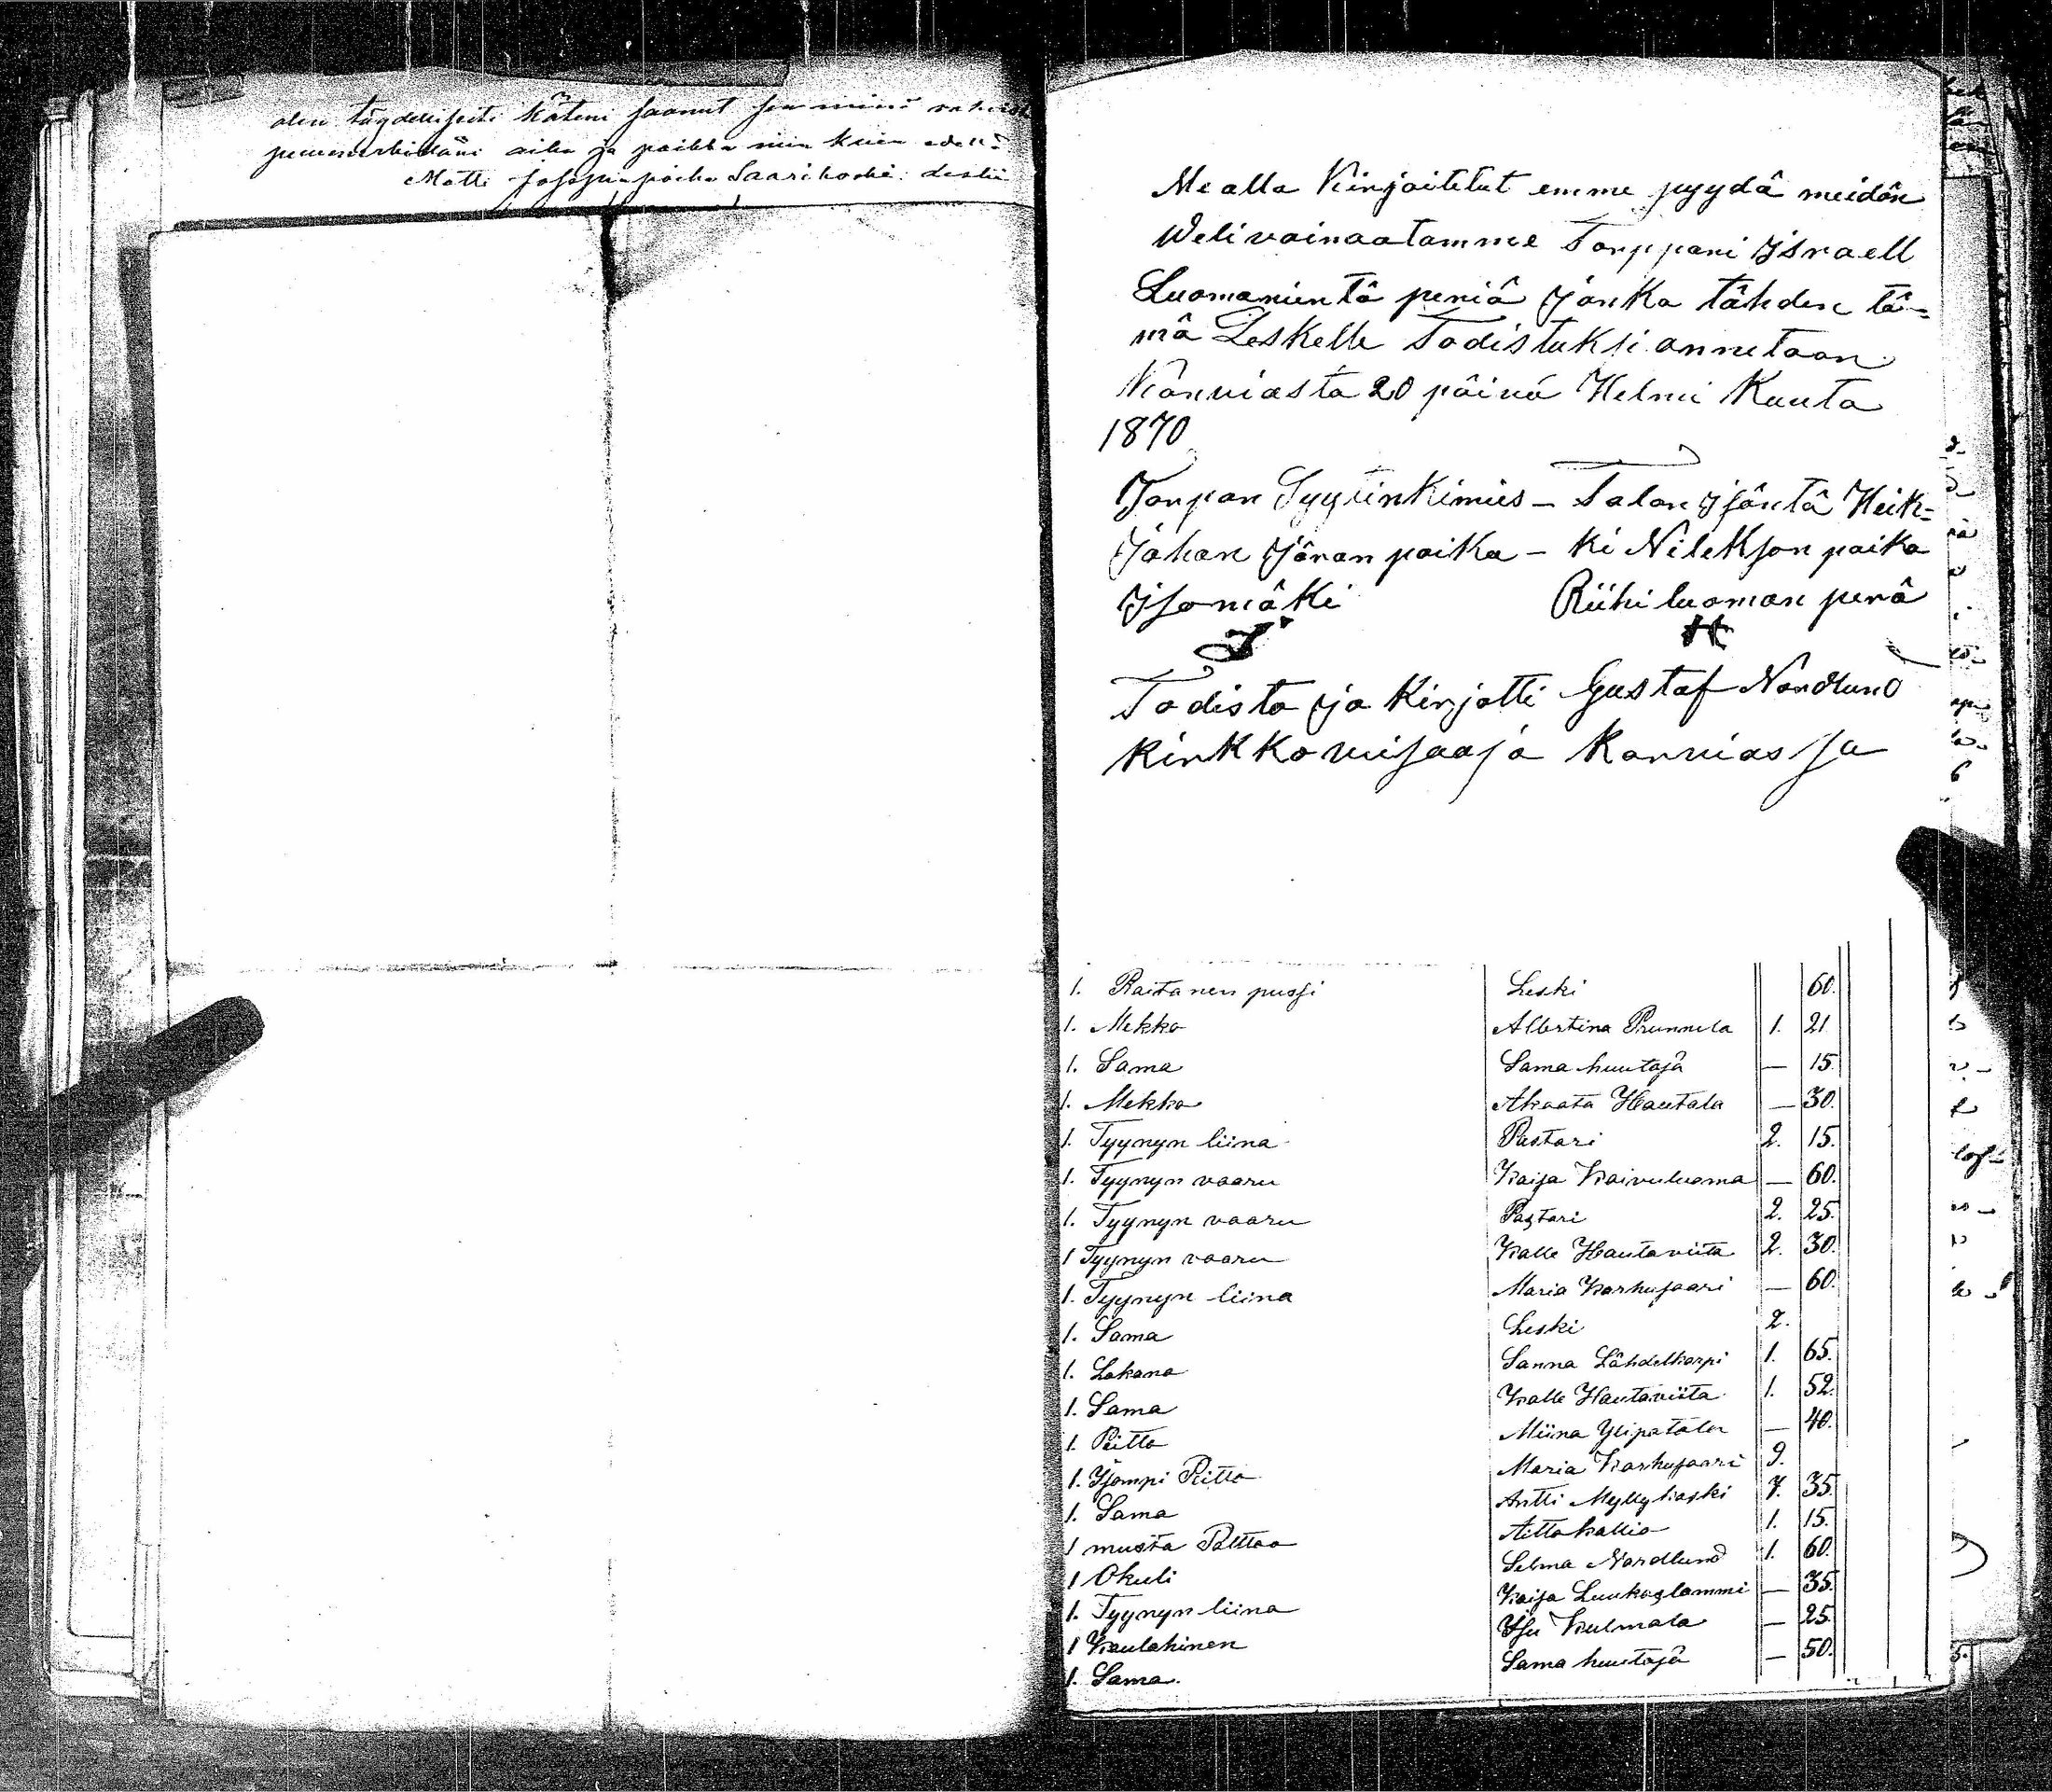 olen täydellisesti käteni saanut sen minä
aika ja paikka niin kuin
Matti poika Saarikoski
Me alla Kirjoitetut emme pyydä meidän
Weli vainaatamme Torppari Israell
Luomanientä periä Jonka tähden tä=
mä Leskelle Todistuksi annetaan
Kanviasta 20 päivä Helmi Kuuta
1870
Torpan Syytinkimies – Talon Isäntä Heik=
Johan Jöran poika – ki Nilekson poika
Isomäki Riihiluoman perä
I H
Todista ja Kirjotti Gustaf Nordlund
Kirkko vijaaja Karvias sa
1. Raitanen pussi Leski 60.
1. Mekko Albertina Prunnila 1. 21
1. Sama Sama huutaja — 15.
1. Mekko Akaata Hautala — 30.
1. Tyynyn liina Pastari 2. 15.
1. Tyynyn vaaru Kaija Kaivuluoma — 60.
1. Tyynyn vaaru Pastari 2. 25.
1 Tyynyn vaaru Kalle Hautaviita 2. 30.
1. Tyynyn liina Maria Karhusaari — 60.
1. Sama Leski 2.
1. Lakana Sanna Lähdelkorpi 1. 65.
1. Sama Kalle Hautaviita 1. 52.
1. Peitto Miina Ylipatala — 40.
1. Isompi Peitto Maria Karhusaari 9.
1. Sama Antti Myllykoski 7. 35.
1 musta Palttoo Aittokallio 1. 15.
1 Okuli Selma Nordlund 1. 60.
1. Tyynyn liina Kaija Luukaslammi — 35.
1 Kaulahinen Kulmala — 25.
1. Sama. Sama huutaja — 50.